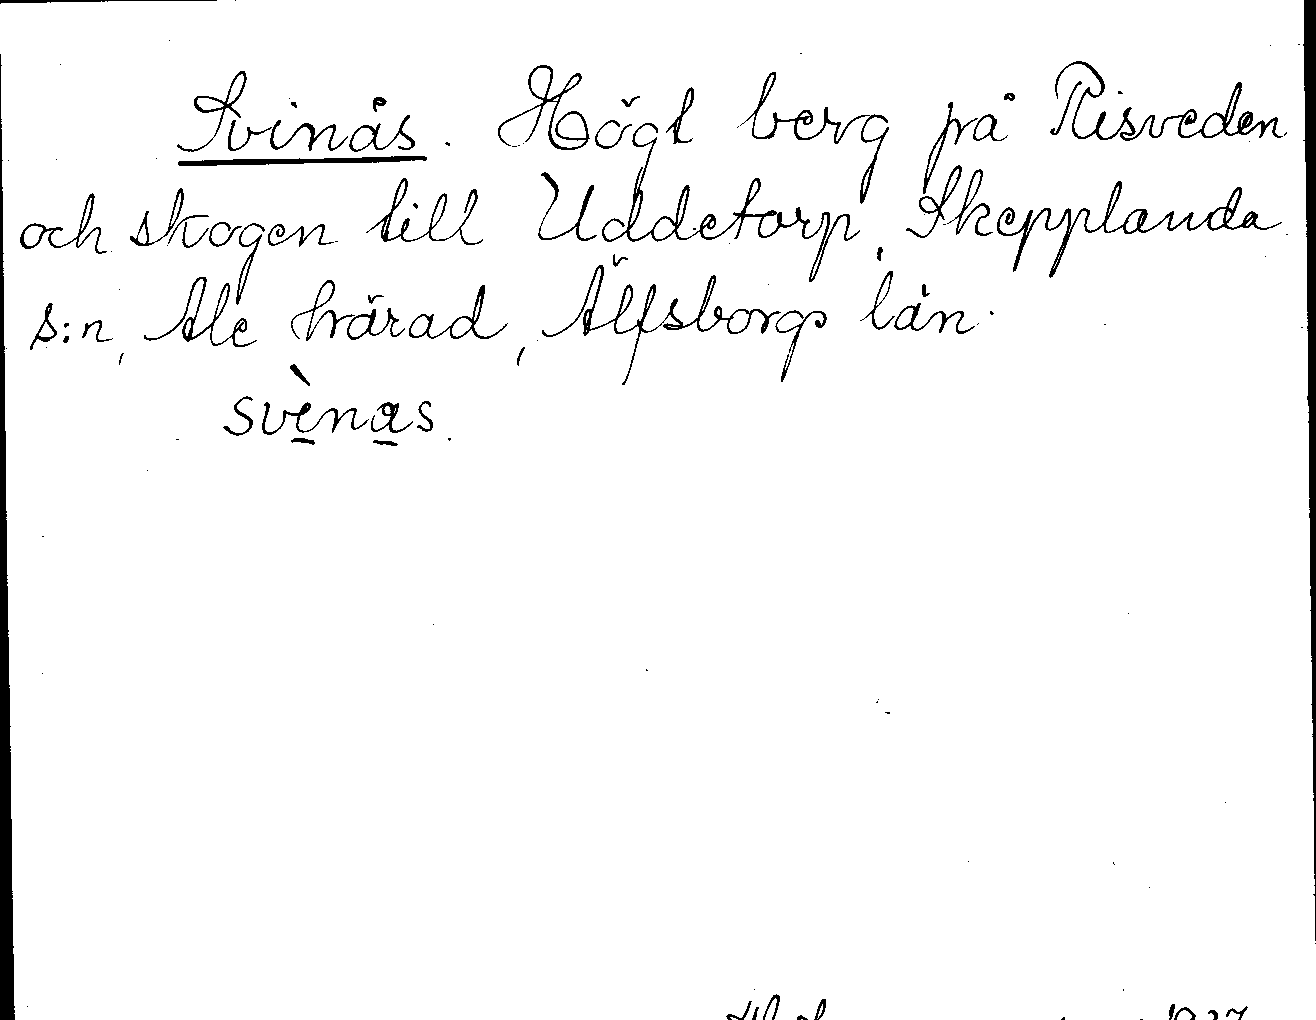 Svinås. Högt berg på Risveden
och skogen till Uddetorp, Skepplanda
s:n, Ale härad, Älfsborgs län.
svènas.